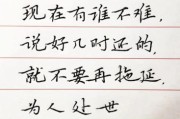 现在有谁不难，
说好几时还的，
就不要再拖延，
为人处世